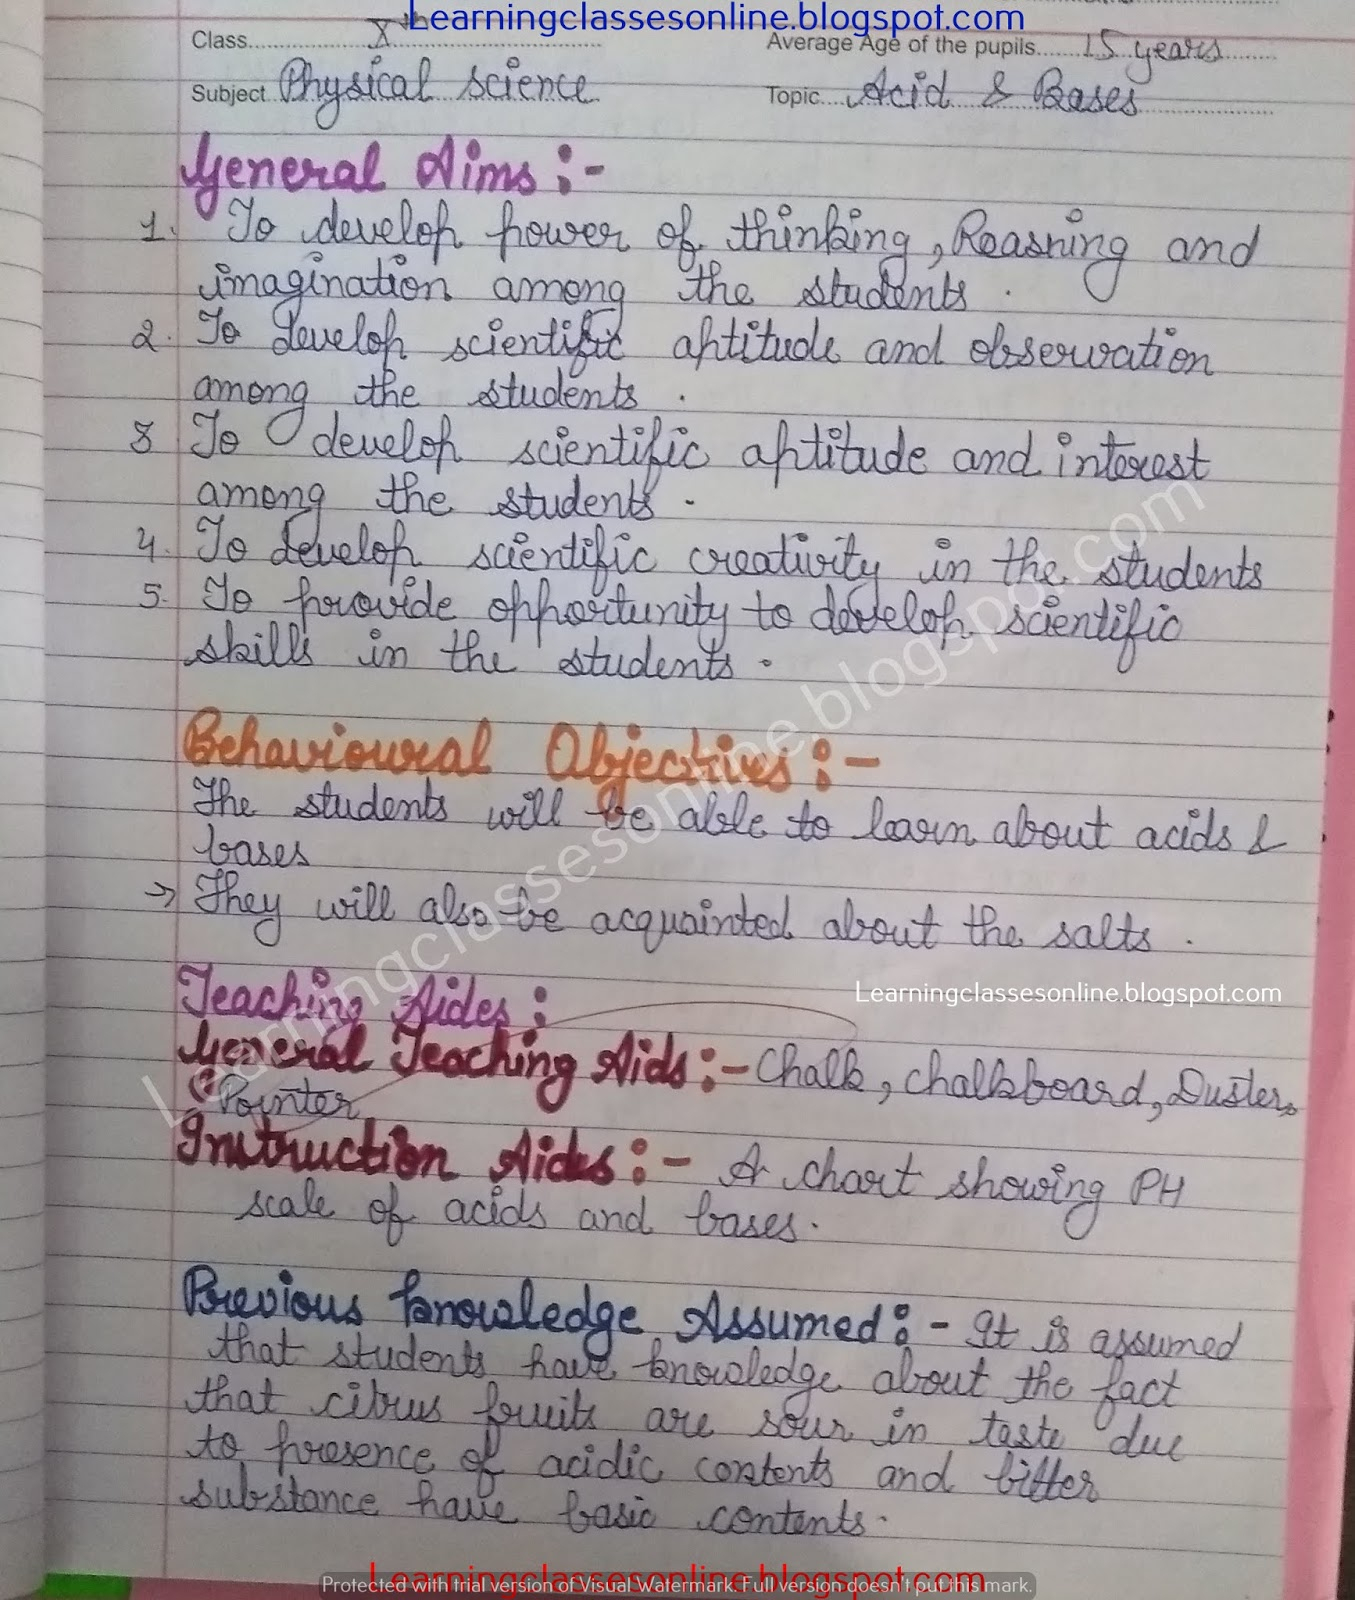 Learningclassesonline.blogspot.com
Class........Xth........ Average Age of the pupils.......15 years........
Subject Physical science Topic....Acid & Bases
General Aims :-
1. To develop power of thinking, Reasning and
imagination among the students.
2. To develop scientific aptitude and observation
among the students.
3 To develop scientific aptitude and interest
among the students.
4. To develop scientific creativity in the students
5. To provide opportunity to develop scientific
skills in the students.
Behavioural Objectives :-
The students will be able to learn about acids &
bases
→ They will also be acquainted about the salts.
Teaching Aides :
Learningclassesonline.blogspot.com
General Teaching Aids :- Chalk, chalkboard, Duster,
Pointer
Instruction Aides :- A chart showing PH
scale of acids and bases.
Previous knowledge Assumed :- It is assumed
that students have knowledge about the fact
that citrus fruits are sour in taste due
to presence of acidic contents and bitter
substance have basic contents.
Learningclassesonline.blogspot.com
Protected with trial version of Visual Watermark. Full version doesn't put this mark.
Learningclassesonline.blogspot.com